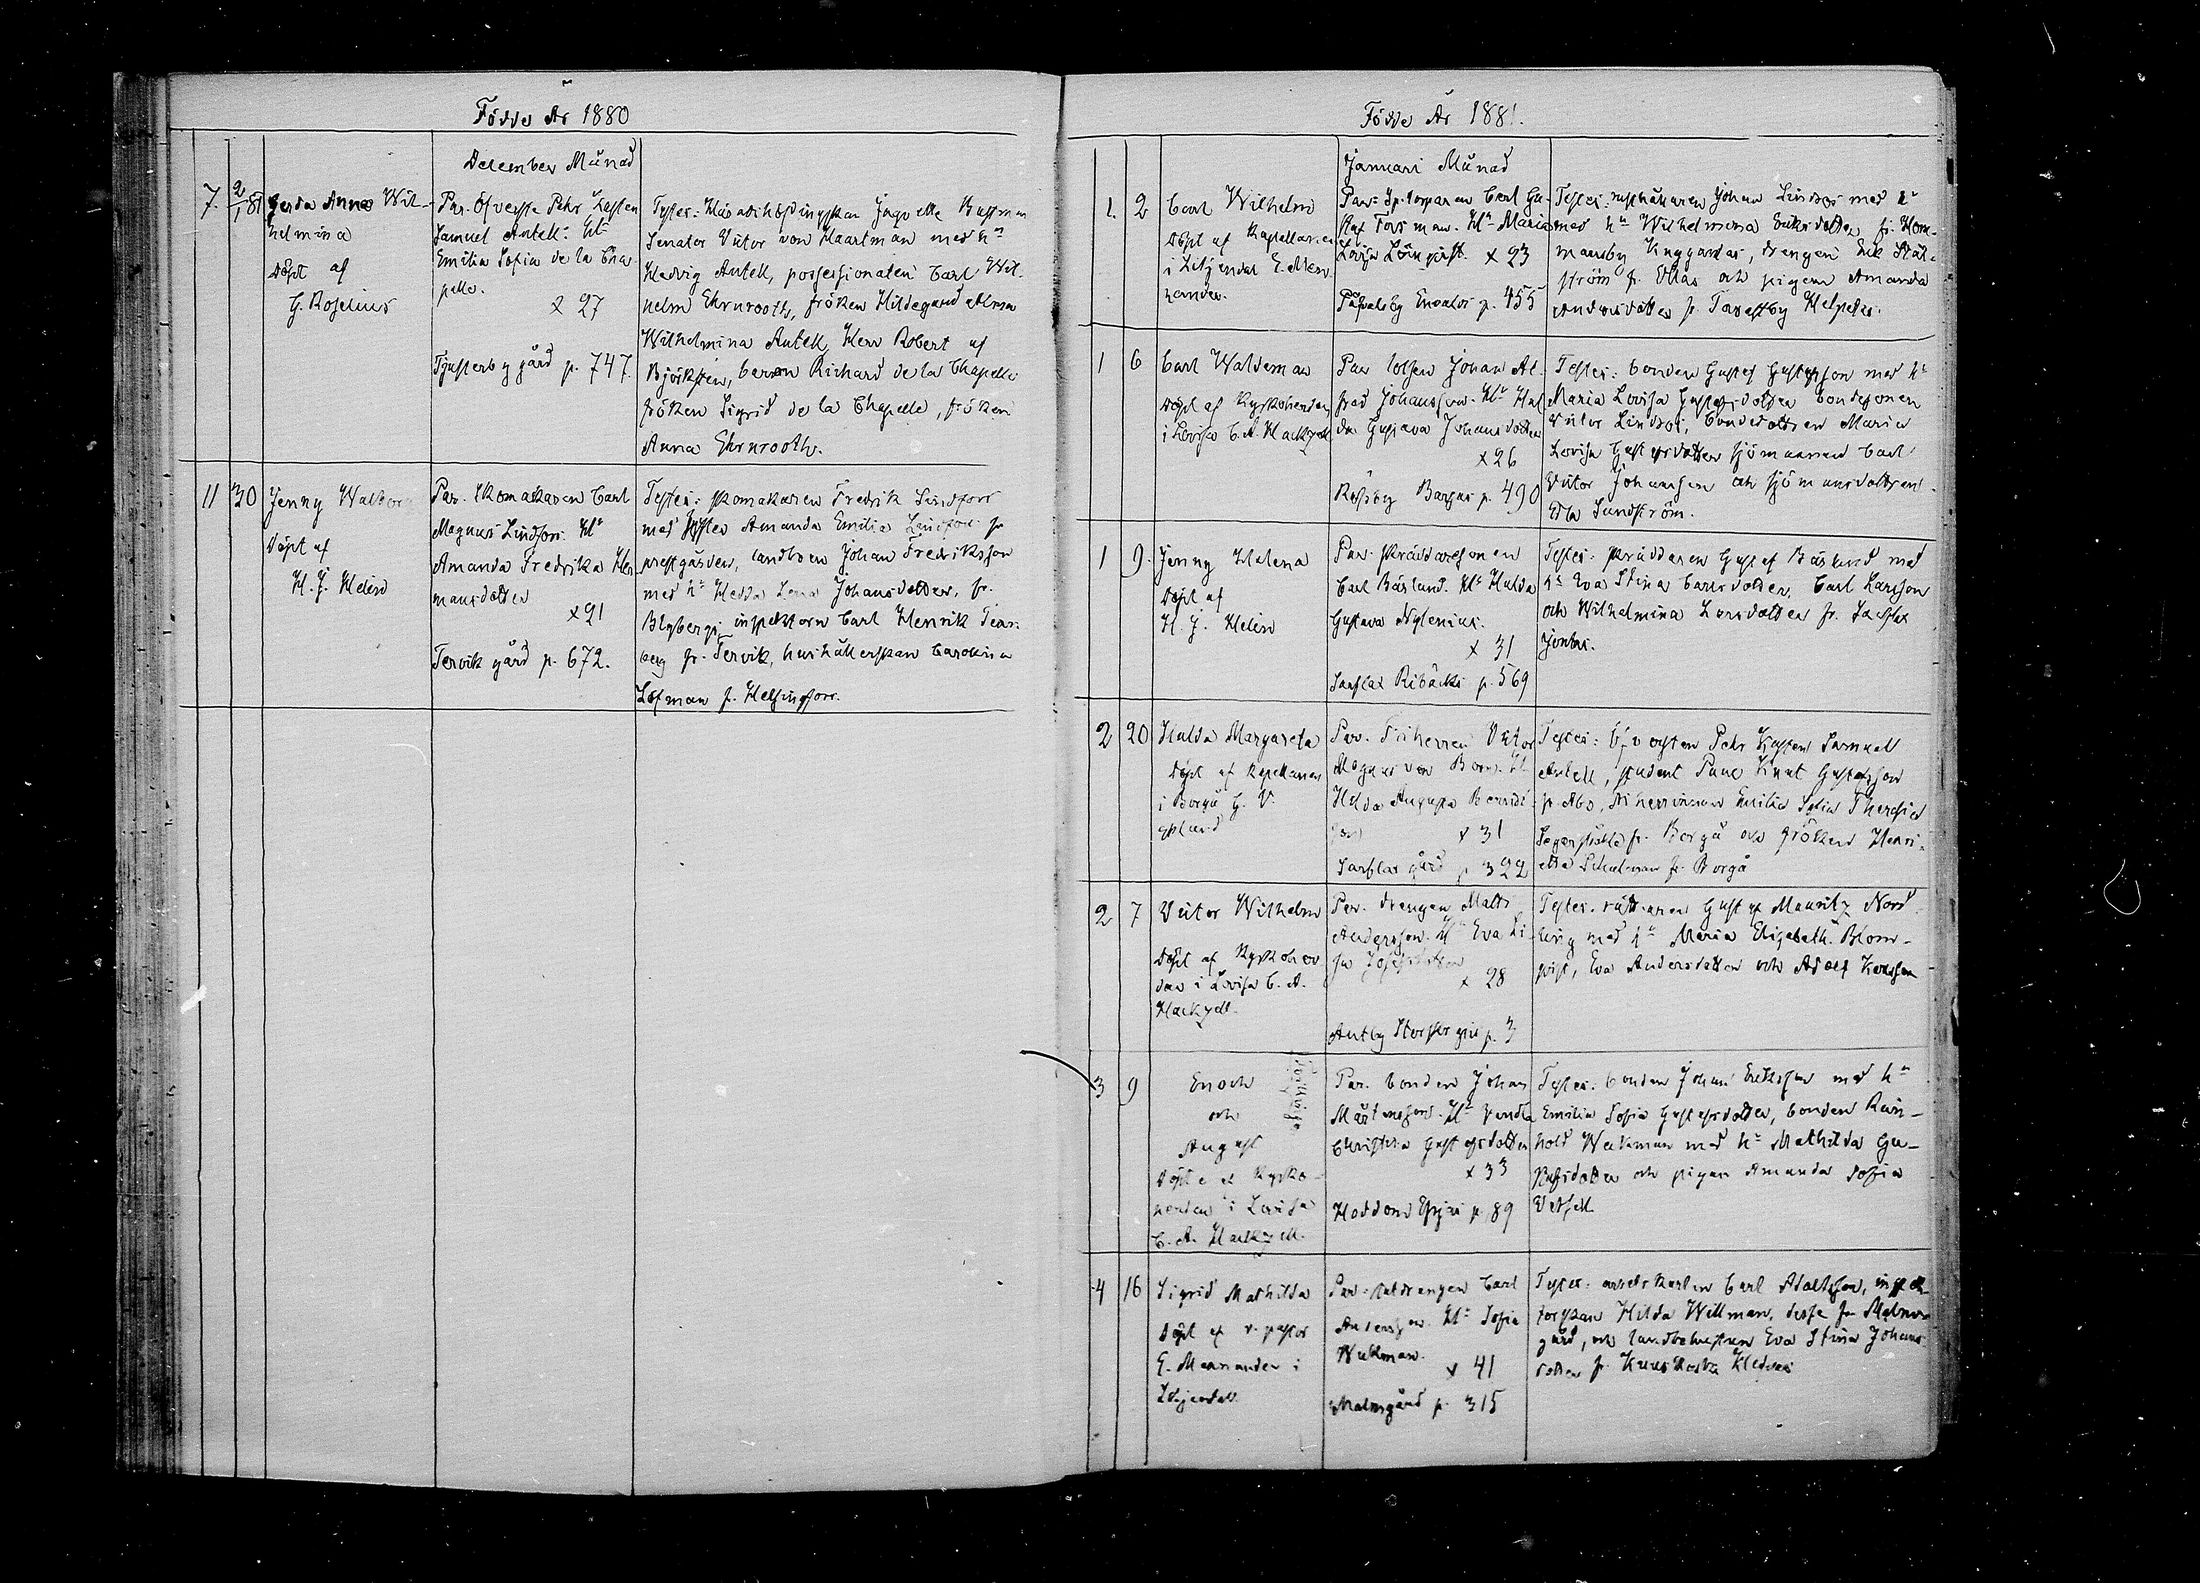 Födde År 1880
December Månad
7. 2/1 81
Gerda Anna Wil-
helmina
Döpt af
G. Roselius
Par. Öfverste Pehr Kasten
Samuel Antell. H:u
Emilia Sofia de la Cha-
pelle.
x 27
Tjusterby gård p. 747.
Testes: Häradshöfdingskan
Senator Victor von Haartman med h:u
Hedvig Antell, possessionaten Carl Wil-
helm Ehrnrooth, fröken Hildegard Alma
Wilhelmina Antell, Herr Robert af
Björksten, baron Richard de la Chapelle
fröken Sigrid de la Chapelle, fröken
Anna Ehrnrooth.
11 30
Jenny Walborg
Döpt af
H. J. Helin
Par. Skomakaren Carl
Magnus Lindfors. H:u
Amanda Fredrika Her-
mansdotter
x 21
Tervik gård p. 672.
Testes: skomakaren Fredrik Lindfors
med syster Amanda Emilia Lindfors fr.
prestgården, landboen Johan Fredriksson
med h:u Hedda Lena Johansdotter, fr.
inspektorn Carl Henrik
berg fr. Tervik, hushållerskan Carolina
Löfman f. Helsingfors.
Födde År 1881.
Januari Månad
1. 2
Carl Wilhelm
Döpt af Kapellanen
i Liljendal E. Meno-
nander.
Par: Sp. torparen Carl Gu-
staf Forsman. H:u Maria
Lovisa Lönnqvist. x 23
Påvalsby Envalds p. 455
Testes: rusthållaren Johan Lindfors med h:u
med h:u Wilhelmina Eriksdotter fr. Hom-
mansby drengen Erik Stål-
ström fr. och pigan Amanda
Andersdotter fr. Tavastby
1 6
Carl Waldemar
Döpt af Kyrkoherden
i Lovisa C. A. Hackzell
Par lotsen Johan Al-
fred Johansson. H:u Hul-
da Gustava Johansdotter
x 26
p. 490
Testes: bonden Gustaf Gustafsson med h:u
Maria Lovisa Gustafsdotter bondesonen
Victor Lindfors, bondedottren Maria
Lovisa Gustafsdotter sjömannen Carl
Victor Johansson och sjömansdottren
Edla Sundström.
1 9.
Jenny Helena
Döpt af
H. J. Helin
Par. skräddaresonen
Carl Bärlund. H:u Hulda
Gustava Nylenius.
x 31
Sarflax Ribäcks p. 569
Testes: skräddaren Gustaf Bärlund med
h:u Eva Stina Carlsdotter, Carl Karlsson
och Wilhelmina Larsdotter fr. Sarflax
Jontas.
2 20
Hulda Margareta
Döpt af Kapellanen
i Borgå G. V.
Par. Friherren Victor
Magnus von Born. H:u
Hilda Augusta
x 31
Sarflax gård p 322
Testes: Öfversten Pehr Kasten Samuel
Antell, student Knut Gustafsson
fr. Åbo, friherrinnan Emilia Sofia Theresia
fr. Borgå och fröken Henri-
etta Schulman fr. Borgå
2 7
Victor Wilhelm
Döpt af Kyrkoher
den i Lovisa C. A.
Hackzell.
Par. drengen Matts
Andersson. H:u Eva Li-
sa Josefsdotter
x 28
Antby p. 3
Testes. rättaren Gustaf Mauritz Nord
ling med h:u Maria Elisabeth Blom-
qvist, Eva Andersdotter och Adolf Karlsson
3 9
Enoch
och
August
Döpte af Kyrko-
herden i Lovisa
C. A. Hackzell.
Par. bonden Johan
Mårtensson. H:u Vendla
Christina Gustafsdotter
x 33
Hoddom p. 89
Testes: bonden Johan Eriksson med h:u
Emilia Sofia Gustafsdotter, bonden Rein-
hold Weckman med h:u Mathilda Gu-
stafsdotter och pigan Amanda Sofia
4 16
Sigrid Mathilda
Döpt af v. pastor
E. Menonander i
Liljendal.
Par. Carl
Andersson. H:u Sofia
Weckman.
x 41
Malmgård p. 315
Testes: arbetskarlen Carl Adolfsson, inspek-
torskan Hilda Wellman, desse fr. Malm-
gård, och Eva Stina Johans
dotter fr. Kuuskoski